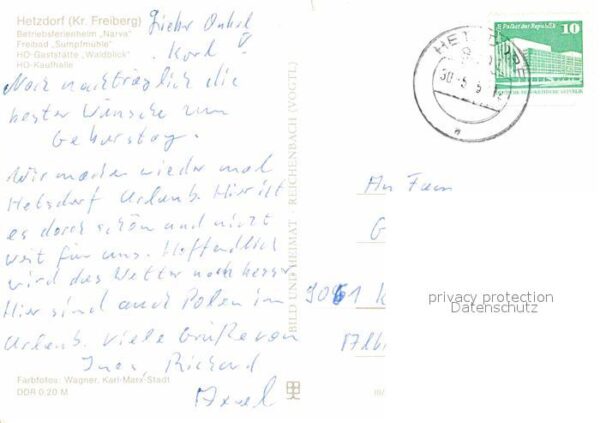 Hetzdorf (Kr. Freiberg)
Betriebsferienheim „Narva"
Freibad „Sumpfmühle"
HO-Gaststätte „Waldblick"
HO-Kaufhalle
Lieber Onkel
Karl
Noch nachträglich die
besten Wünsche zum
Geburtstag.
Wir machen wieder mal
Hetzdorf Urlaub. Hier ist
es doch schön und nicht
weit für uns. Hoffentlich
wird das Wetter noch besser
Hier sind auch Polen im
Urlaub. Viele Grüße von
Richard
Axel
Farbfotos: Wagner, Karl-Marx-Stadt
DDR 0,20 M
BILD UND HEIMAT · REICHENBACH (VOGTL)
Palast der Republik 10
An Fam
G
9051 K
Alb
privacy protection
Datenschutz
III/